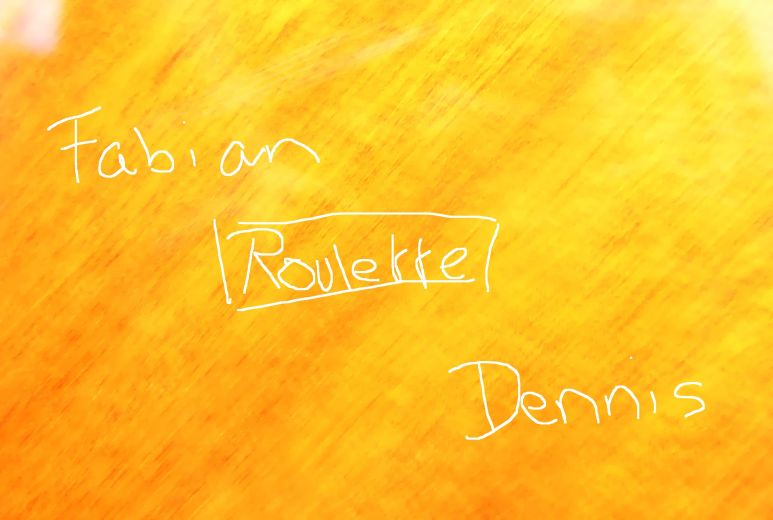 Fabian
Roulette
Dennis